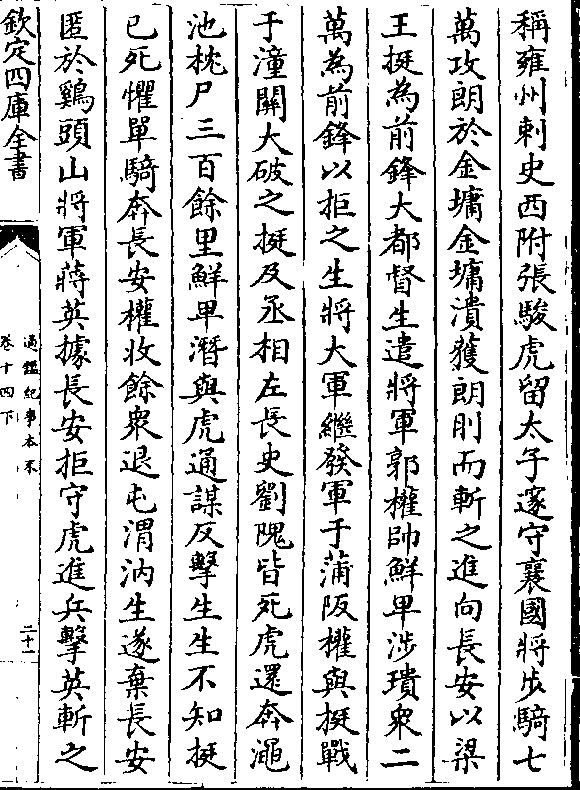 稱雍州刺史西附張駿虎留太子邃守襄國將步騎七
萬攻朗於金墉金墉潰獲朗刖而斬之進向長安以梁
王挺為前鋒大都督生遣將軍郭權帥鮮卑涉璝衆二
萬為前鋒以拒之生將大軍繼發軍于蒲阪權與挺戰
于潼關大破之挺及丞相左長史劉隗皆死虎還奔澠
池枕尸三百餘里鮮卑潛與虎通謀反擊生生不知挺
已死懼單騎奔長安權收餘衆退屯渭汭生遂棄長安
匿於鷄頭山將軍蔣英據長安拒守虎進兵擊英斬之
欽定四庫全書
通鑑紀事本末
卷十四下
二十一